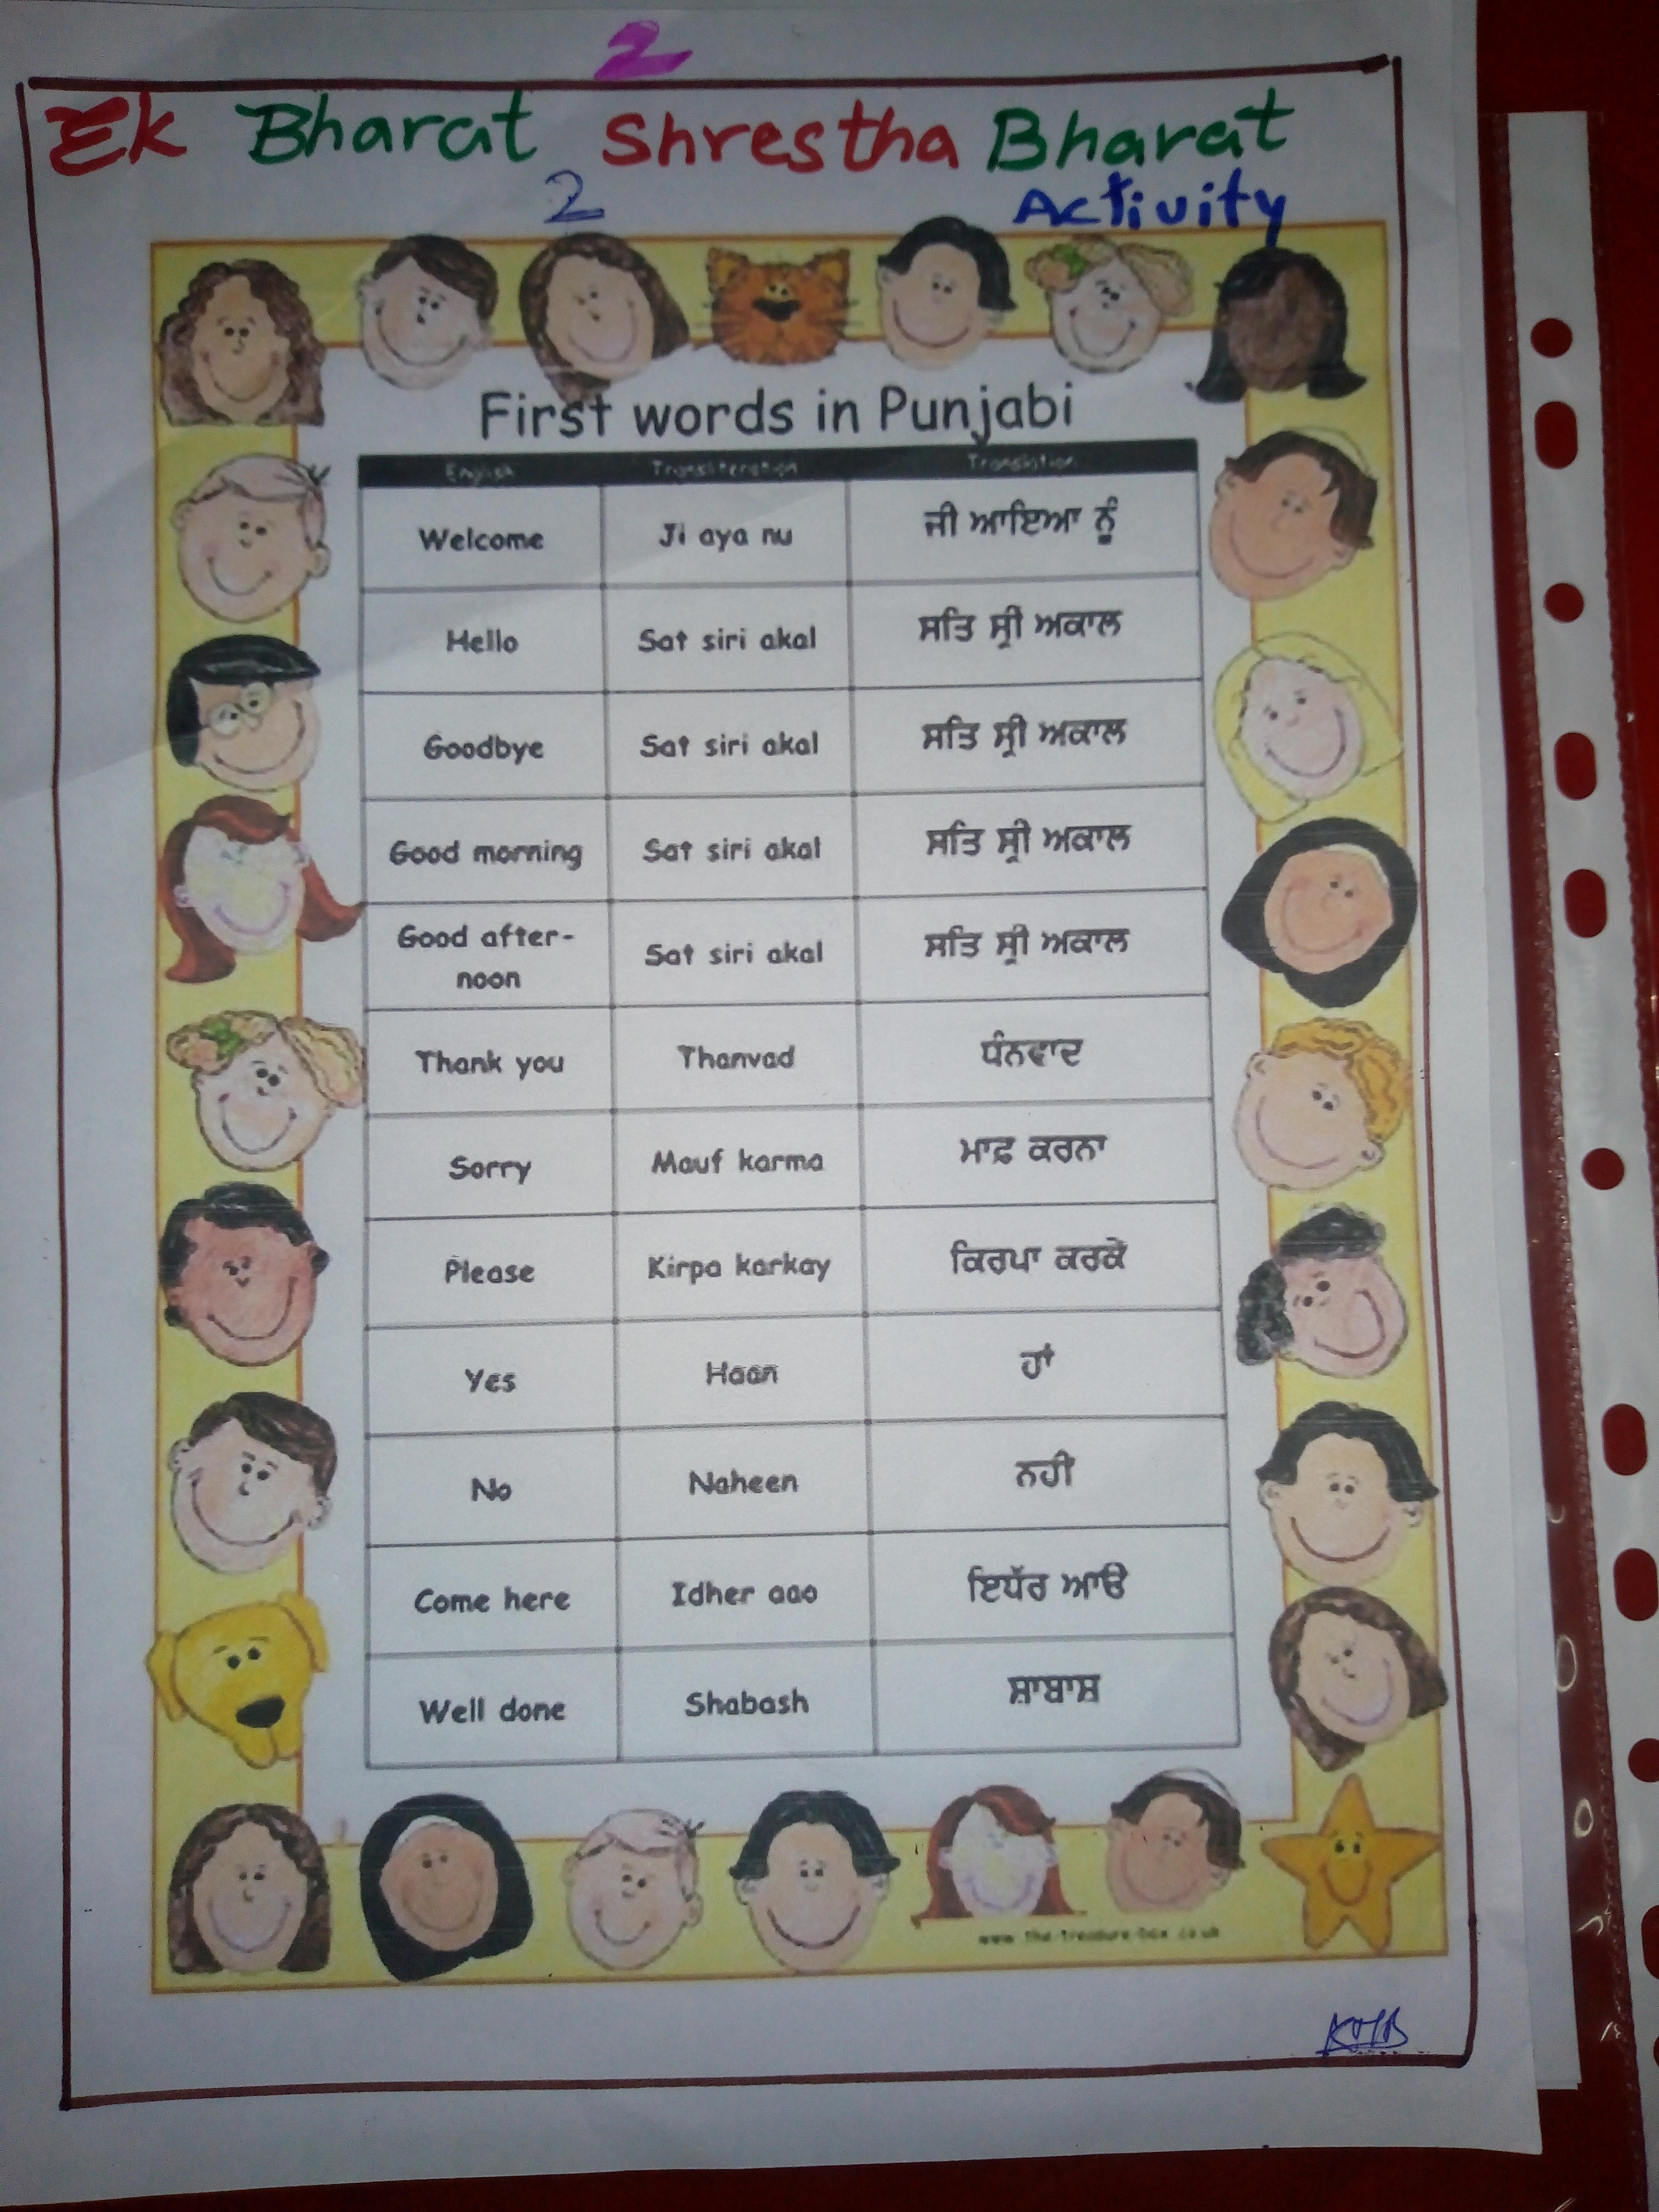 2
Ek Bharat Shrestha Bharat
2 Activity
First words in Punjabi
English Transliteration Translation
Welcome Ji aya nu ਜੀ ਆਇਆ ਨੂੰ
Hello Sat siri akal ਸਤਿ ਸ੍ਰੀ ਅਕਾਲ
Goodbye Sat siri akal ਸਤਿ ਸ੍ਰੀ ਅਕਾਲ
Good morning Sat siri akal ਸਤਿ ਸ੍ਰੀ ਅਕਾਲ
Good after-
noon Sat siri akal ਸਤਿ ਸ੍ਰੀ ਅਕਾਲ
Thank you Thanvad ਧੰਨਵਾਦ
Sorry Mauf karma ਮਾਫ਼ ਕਰਨਾ
Please Kirpa karkay ਕਿਰਪਾ ਕਰਕੇ
Yes Haan ਹਾਂ
No Naheen ਨਹੀਂ
Come here Idher aao ਇਧੱਰ ਆਓ
Well done Shabash ਸ਼ਾਬਾਸ਼
www.the-treasure-box.co.uk